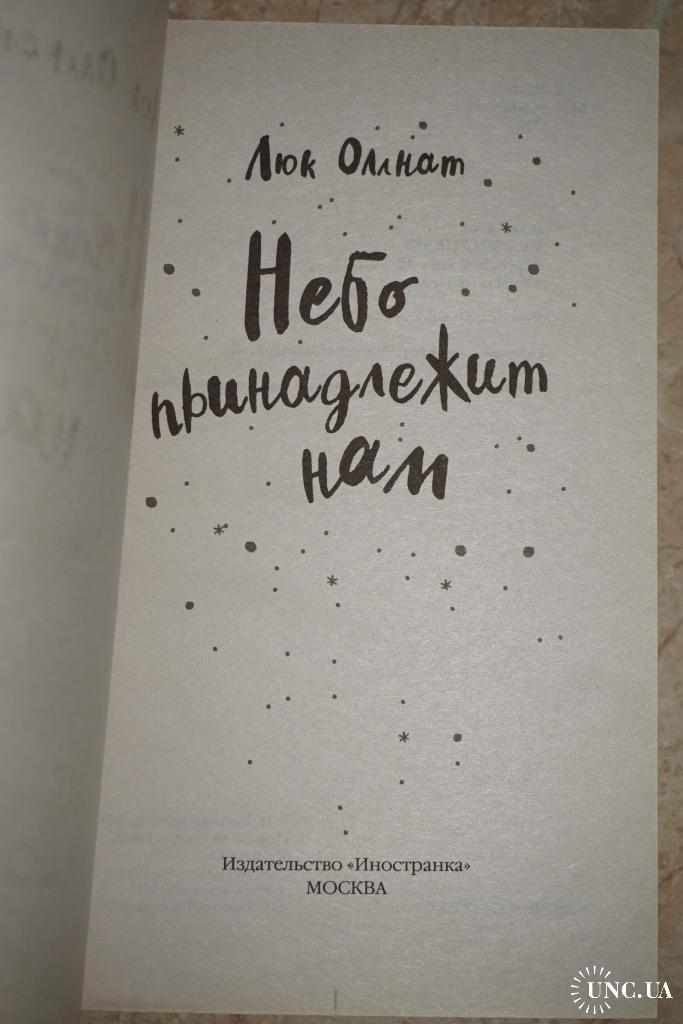 Люк Оллнат
Небо
принадлежит
нам
Издательство «Иностранка»
МОСКВА
UNC.UA